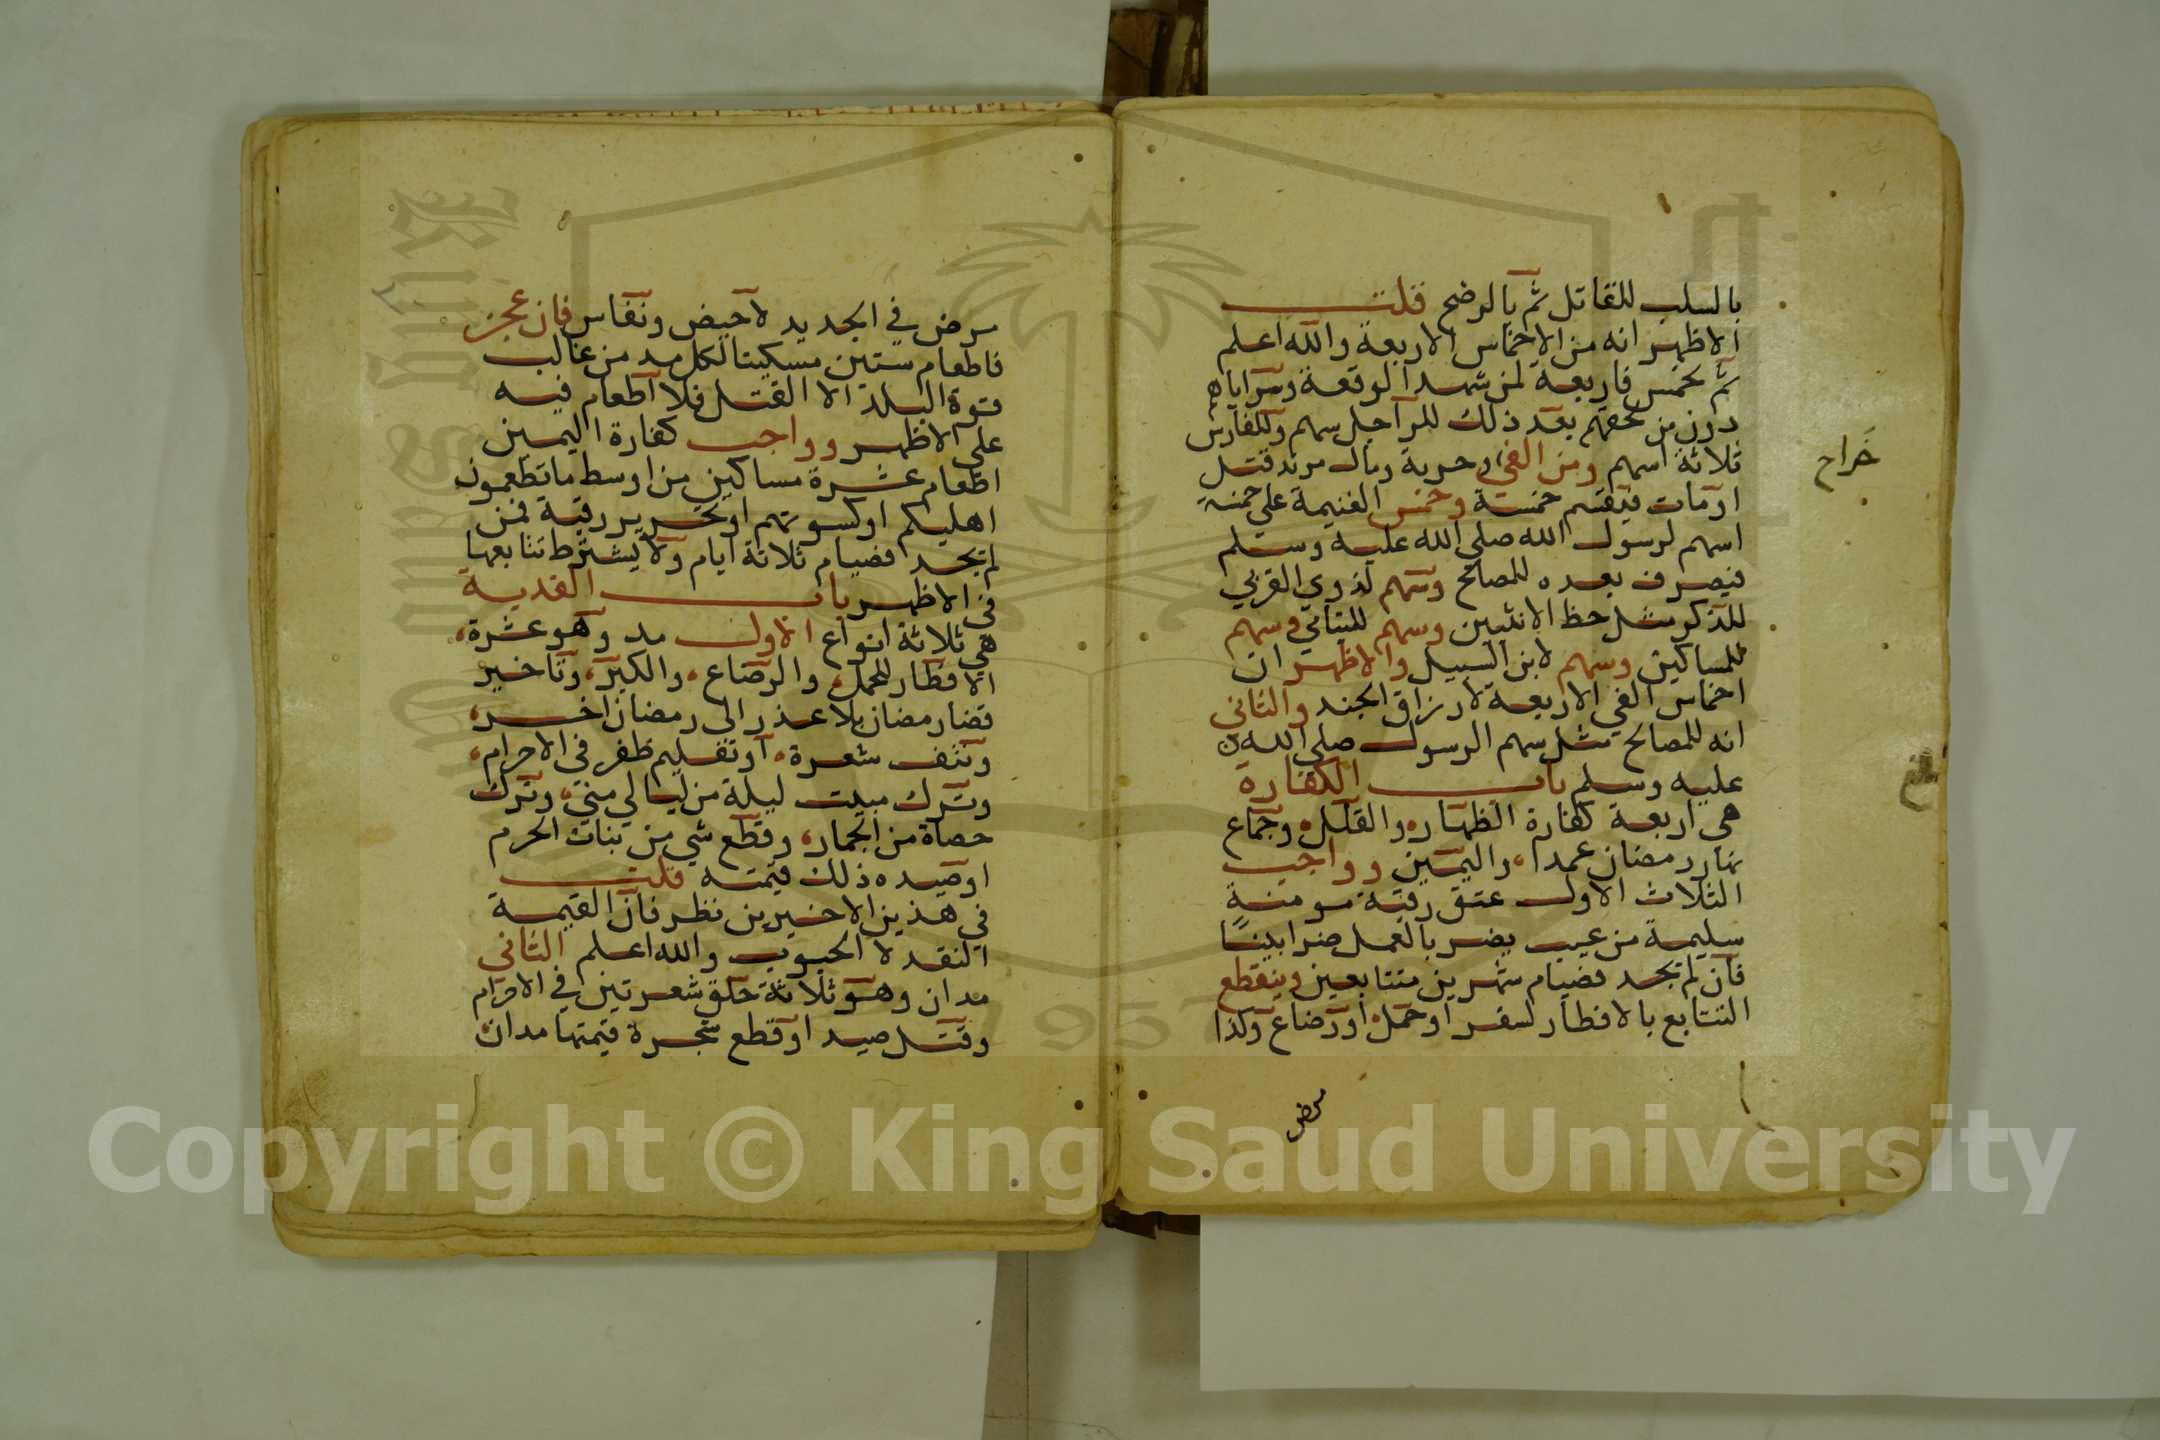 بالسلب للقاتل ثم بالرضخ قلت
الاظهر انه من الاخماس الاربعة والله اعلم
ثم يخمس فاربعة لمن شهد الوقعة وسراياه
دون من لحقهم بعد ذلك للراجل سهم وللفارس
ثلاثة اسهم ومن الفيء وجزية ومال مرتد قتل
خراج
او مات فيقسم خمسة وخمس الغنيمة على خمسة
اسهم لرسول الله صلى الله عليه وسلم
فيصرف بعده للمصالح وسهم لذوي القربى
للذكر مثل حظ الانثيين وسهم لليتامى وسهم
للمساكين وسهم لابن السبيل والاظهر ان
اخماس الفي الاربعة لارزاق الجند والثاني
انه للمصالح مثل سهم الرسول صلى الله
عليه وسلم باب الكفارة
هي اربعة كفارة الظهار والقتل وجماع
نهار رمضان عمدا، واليمين وواجب
الثلاث الاول عتق رقبة مومنة
سليمة من عيب يضر بالعمل ضررا بينا
فان لم تجد فصيام شهرين متتابعين وينقطع
التتابع بالافطار لسفر او حمل او رضاع وكذا
مرض
مرض في الجديد لا حيض ونفاس فان عجز
فاطعام ستين مسكينا لكل مد من غالب
قوة البلد الا القتل فلا اطعام فيه
على الاظهر وواجب كفارة اليمين
اطعام عشرة مساكين من اوسط ما تطعمون
اهليكم او كسوتهم او تحرير رقبة فمن
لم تجد فصيام ثلاثة ايام ولا يشترط تتابعها
في الاظهر باب الفدية
هي ثلاثة انواع الاول مد وهو عشرة،
الافطار للحمل، والرضاع، والكبر، وتاخير
قضا رمضان بلا عذر الى رمضان اخر،
ونتف شعرة، او تقليم ظفر في الاحرام،
وترك مبيت ليلة من ليالي منى، وترك
حصاة من الجمار، وقطع شي من نبات الحرم
او صيده ذلك قيمته قلت
في هذين الاخيرين نظر فان القيمة
النقد لا الحبوب والله اعلم الثاني
مدان وهو ثلاثة حلق شعرتين في الاحرام
وقتل صيد او قطع شجرة قيمتها مدان
Copyright © King Saud University
King Saud University
1957